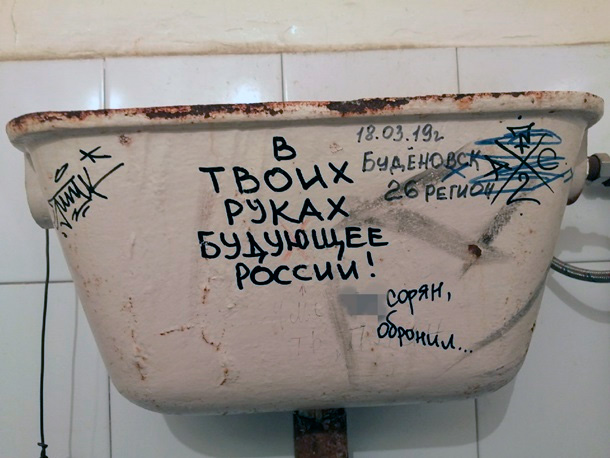 В
ТВОИХ
РУКАХ
БУДУЮЩЕЕ
РОССИИ!
18.03.19г
БУДЁНОВСК
26 РЕГИОН
сорян,
обронил...